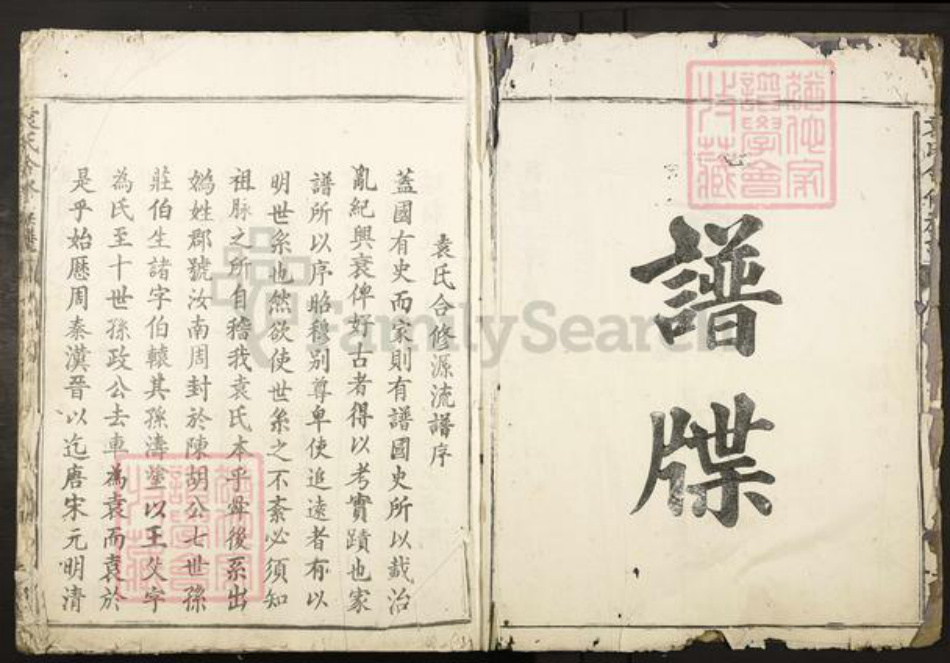 譜牒
袁氏合修源流譜序
蓋國有史而家則有譜國史所以載治
亂紀興衰俾好古者得以考實蹟也家
譜所以序昭穆别尊卑使追遠者有以
明世系也然欲使世系之不紊必須知
祖脉之所自稽我袁氏本乎舜後系出
媯姓郡號汝南周封於陳胡公七世孫
莊伯生諸字伯轅其孫濤塗以王父字
為氏至十世孫政公去車為袁而袁於
是乎始歷周秦漢晉以迄唐宋元明清
FamilySearch